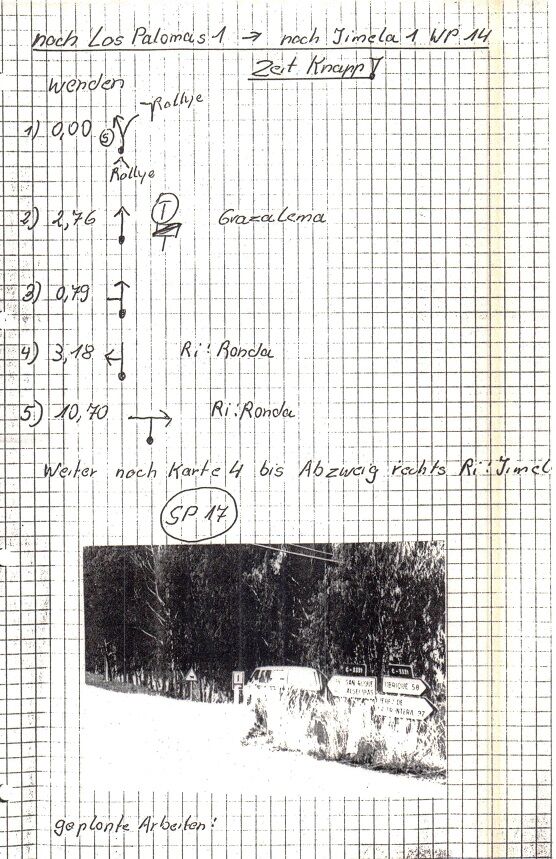 nach Los Palomas 1 → nach Jimela 1 WP 14
Zeit Knapp!
Wenden
Rallye
1) 0,00 S
Rallye
2) 2,76 T T Grazalema
3) 0,79
4) 3,18 Ri: Ronda
5) 10,70 Ri: Ronda
Weiter nach Karte 4 bis Abzweig rechts Ri: Jimel
SP 17
C-3331 C-3331
SAN ROQUE UBRIQUE 58
ALGECIRAS JEREZ DE
97
geplante Arbeiten: